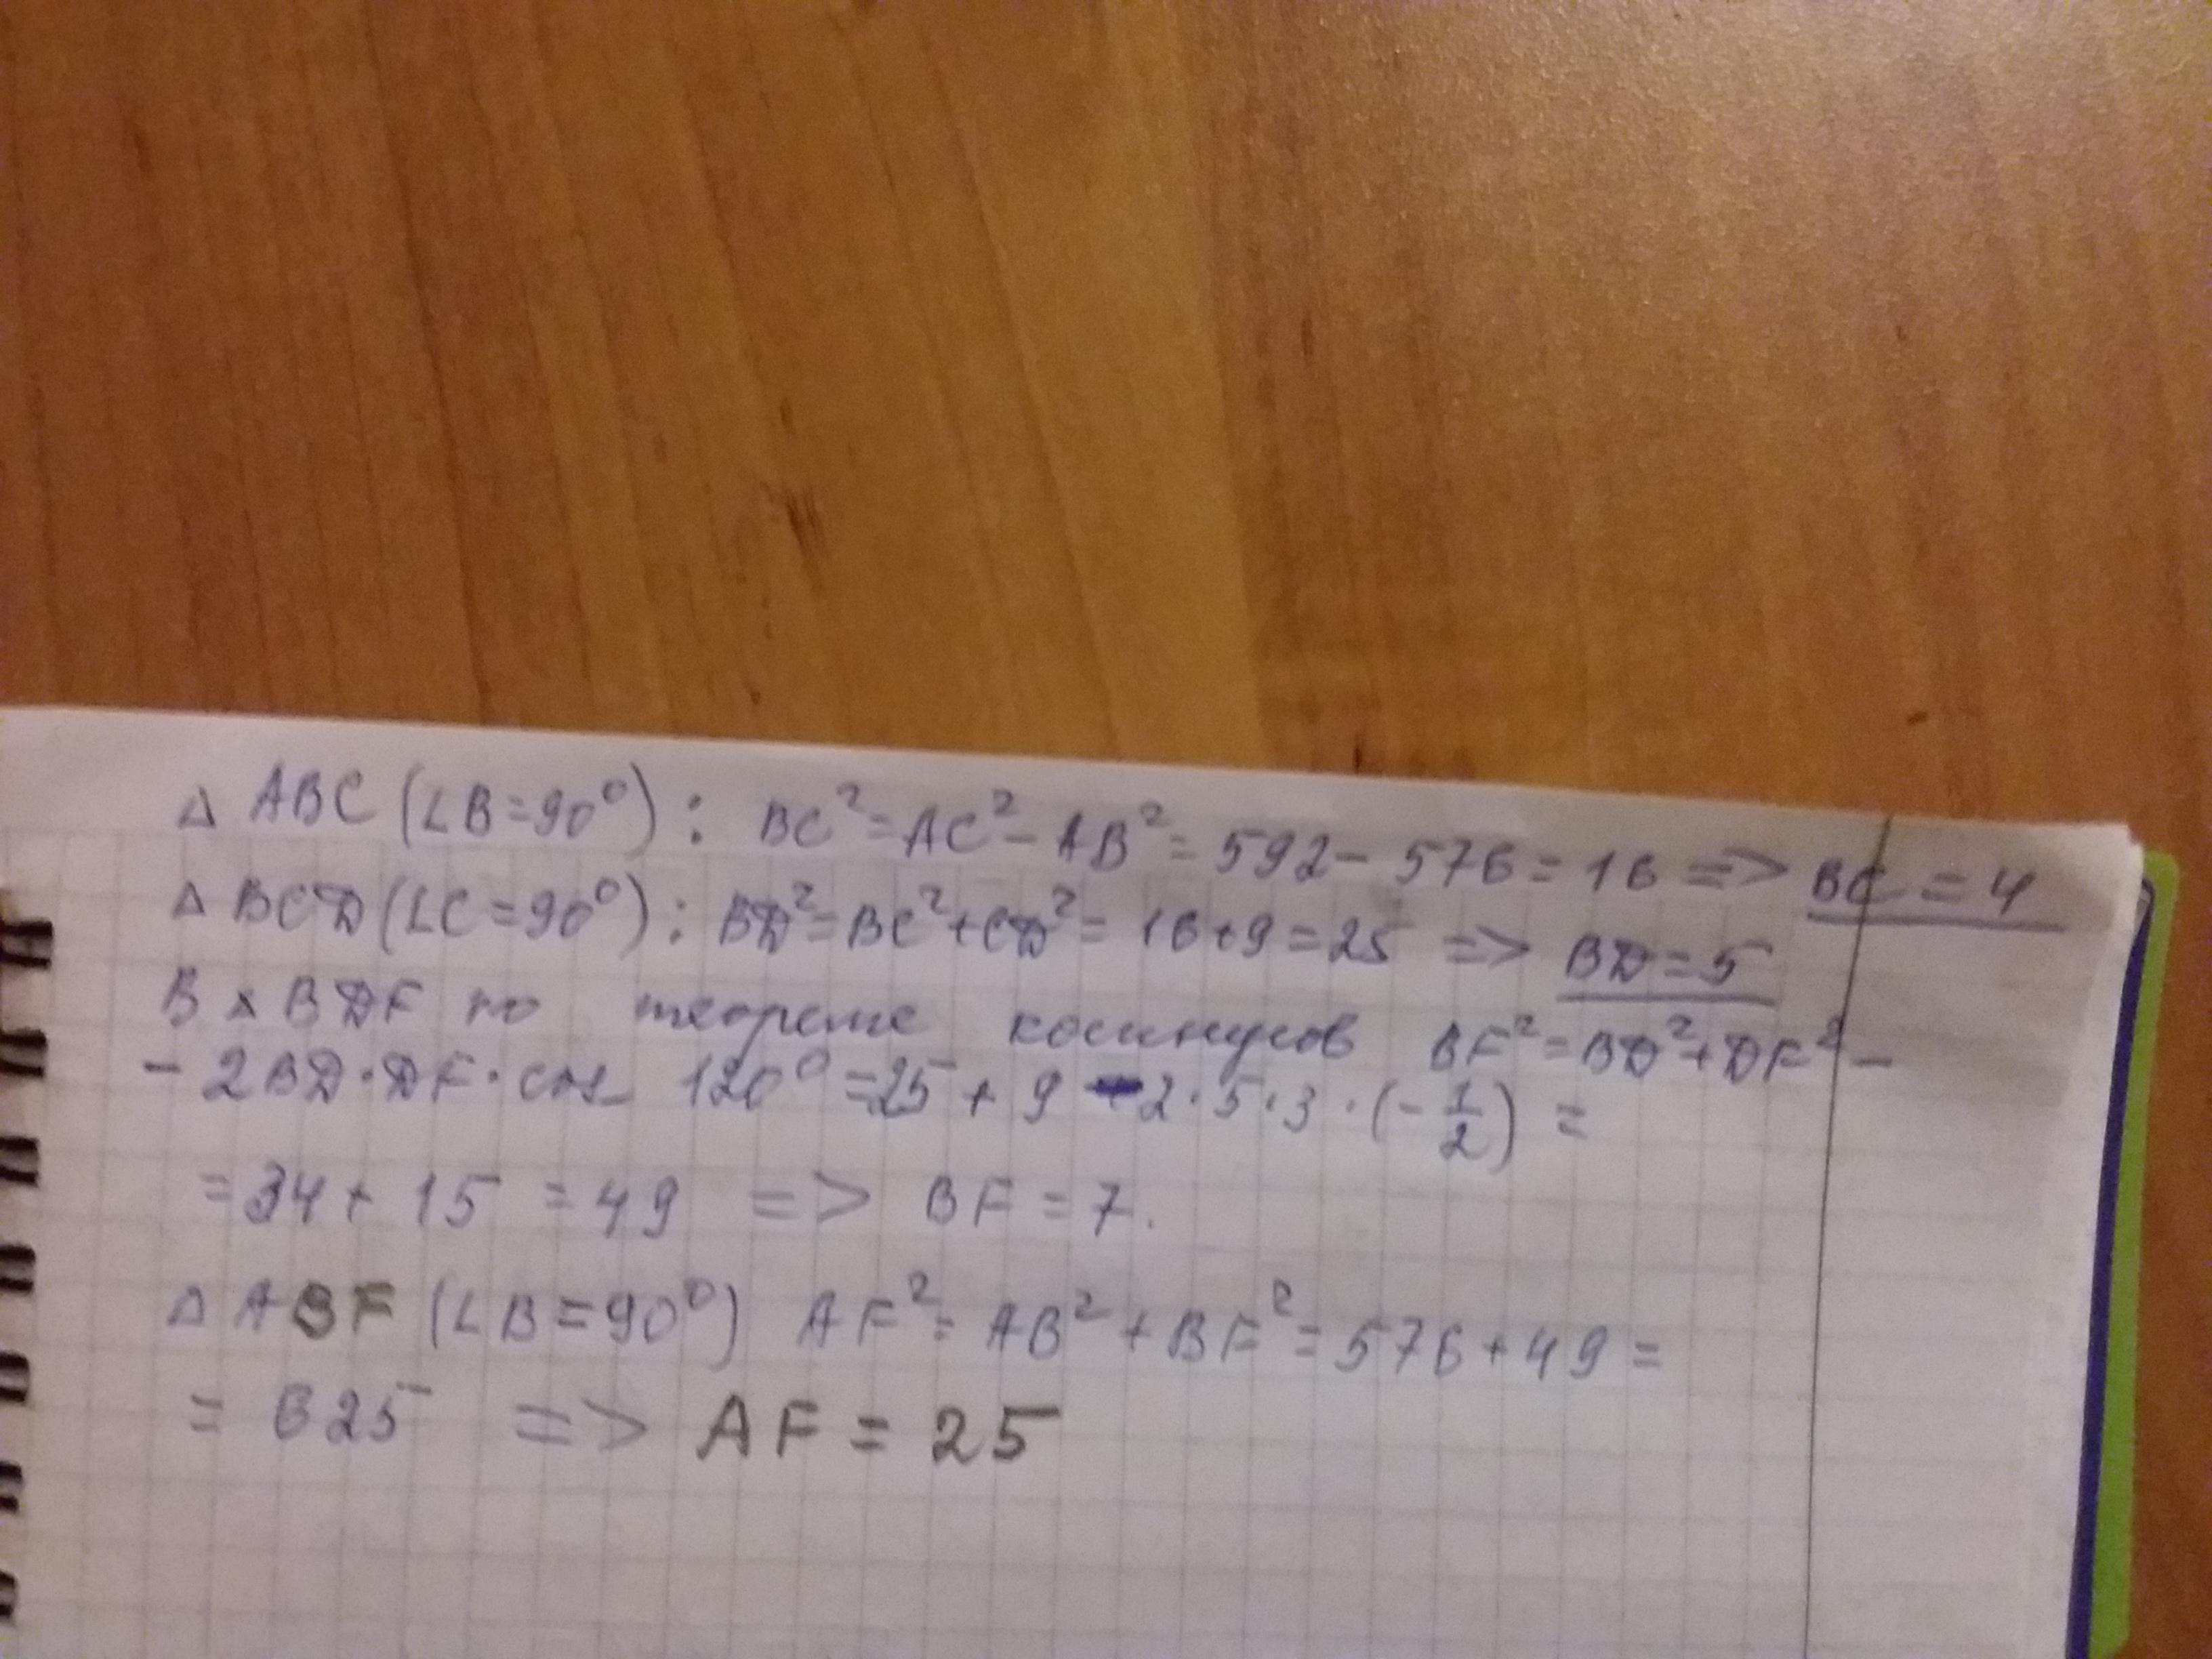 Δ ABC (∠B=90°): BC²=AC²-AB²=592-576=16 => BC=4
Δ BCD (∠C=90°): BD²=BC²+CD²=16+9=25 => BD=5
В Δ BDF по теореме косинусов BF²=BD²+DF²-
-2BD·DF·cos 120°=25+9-2·5·3·(-1/2)=
=34+15=49 => BF=7.
Δ ABF (∠B=90°) AF²=AB²+BF²=576+49=
=625 => AF=25